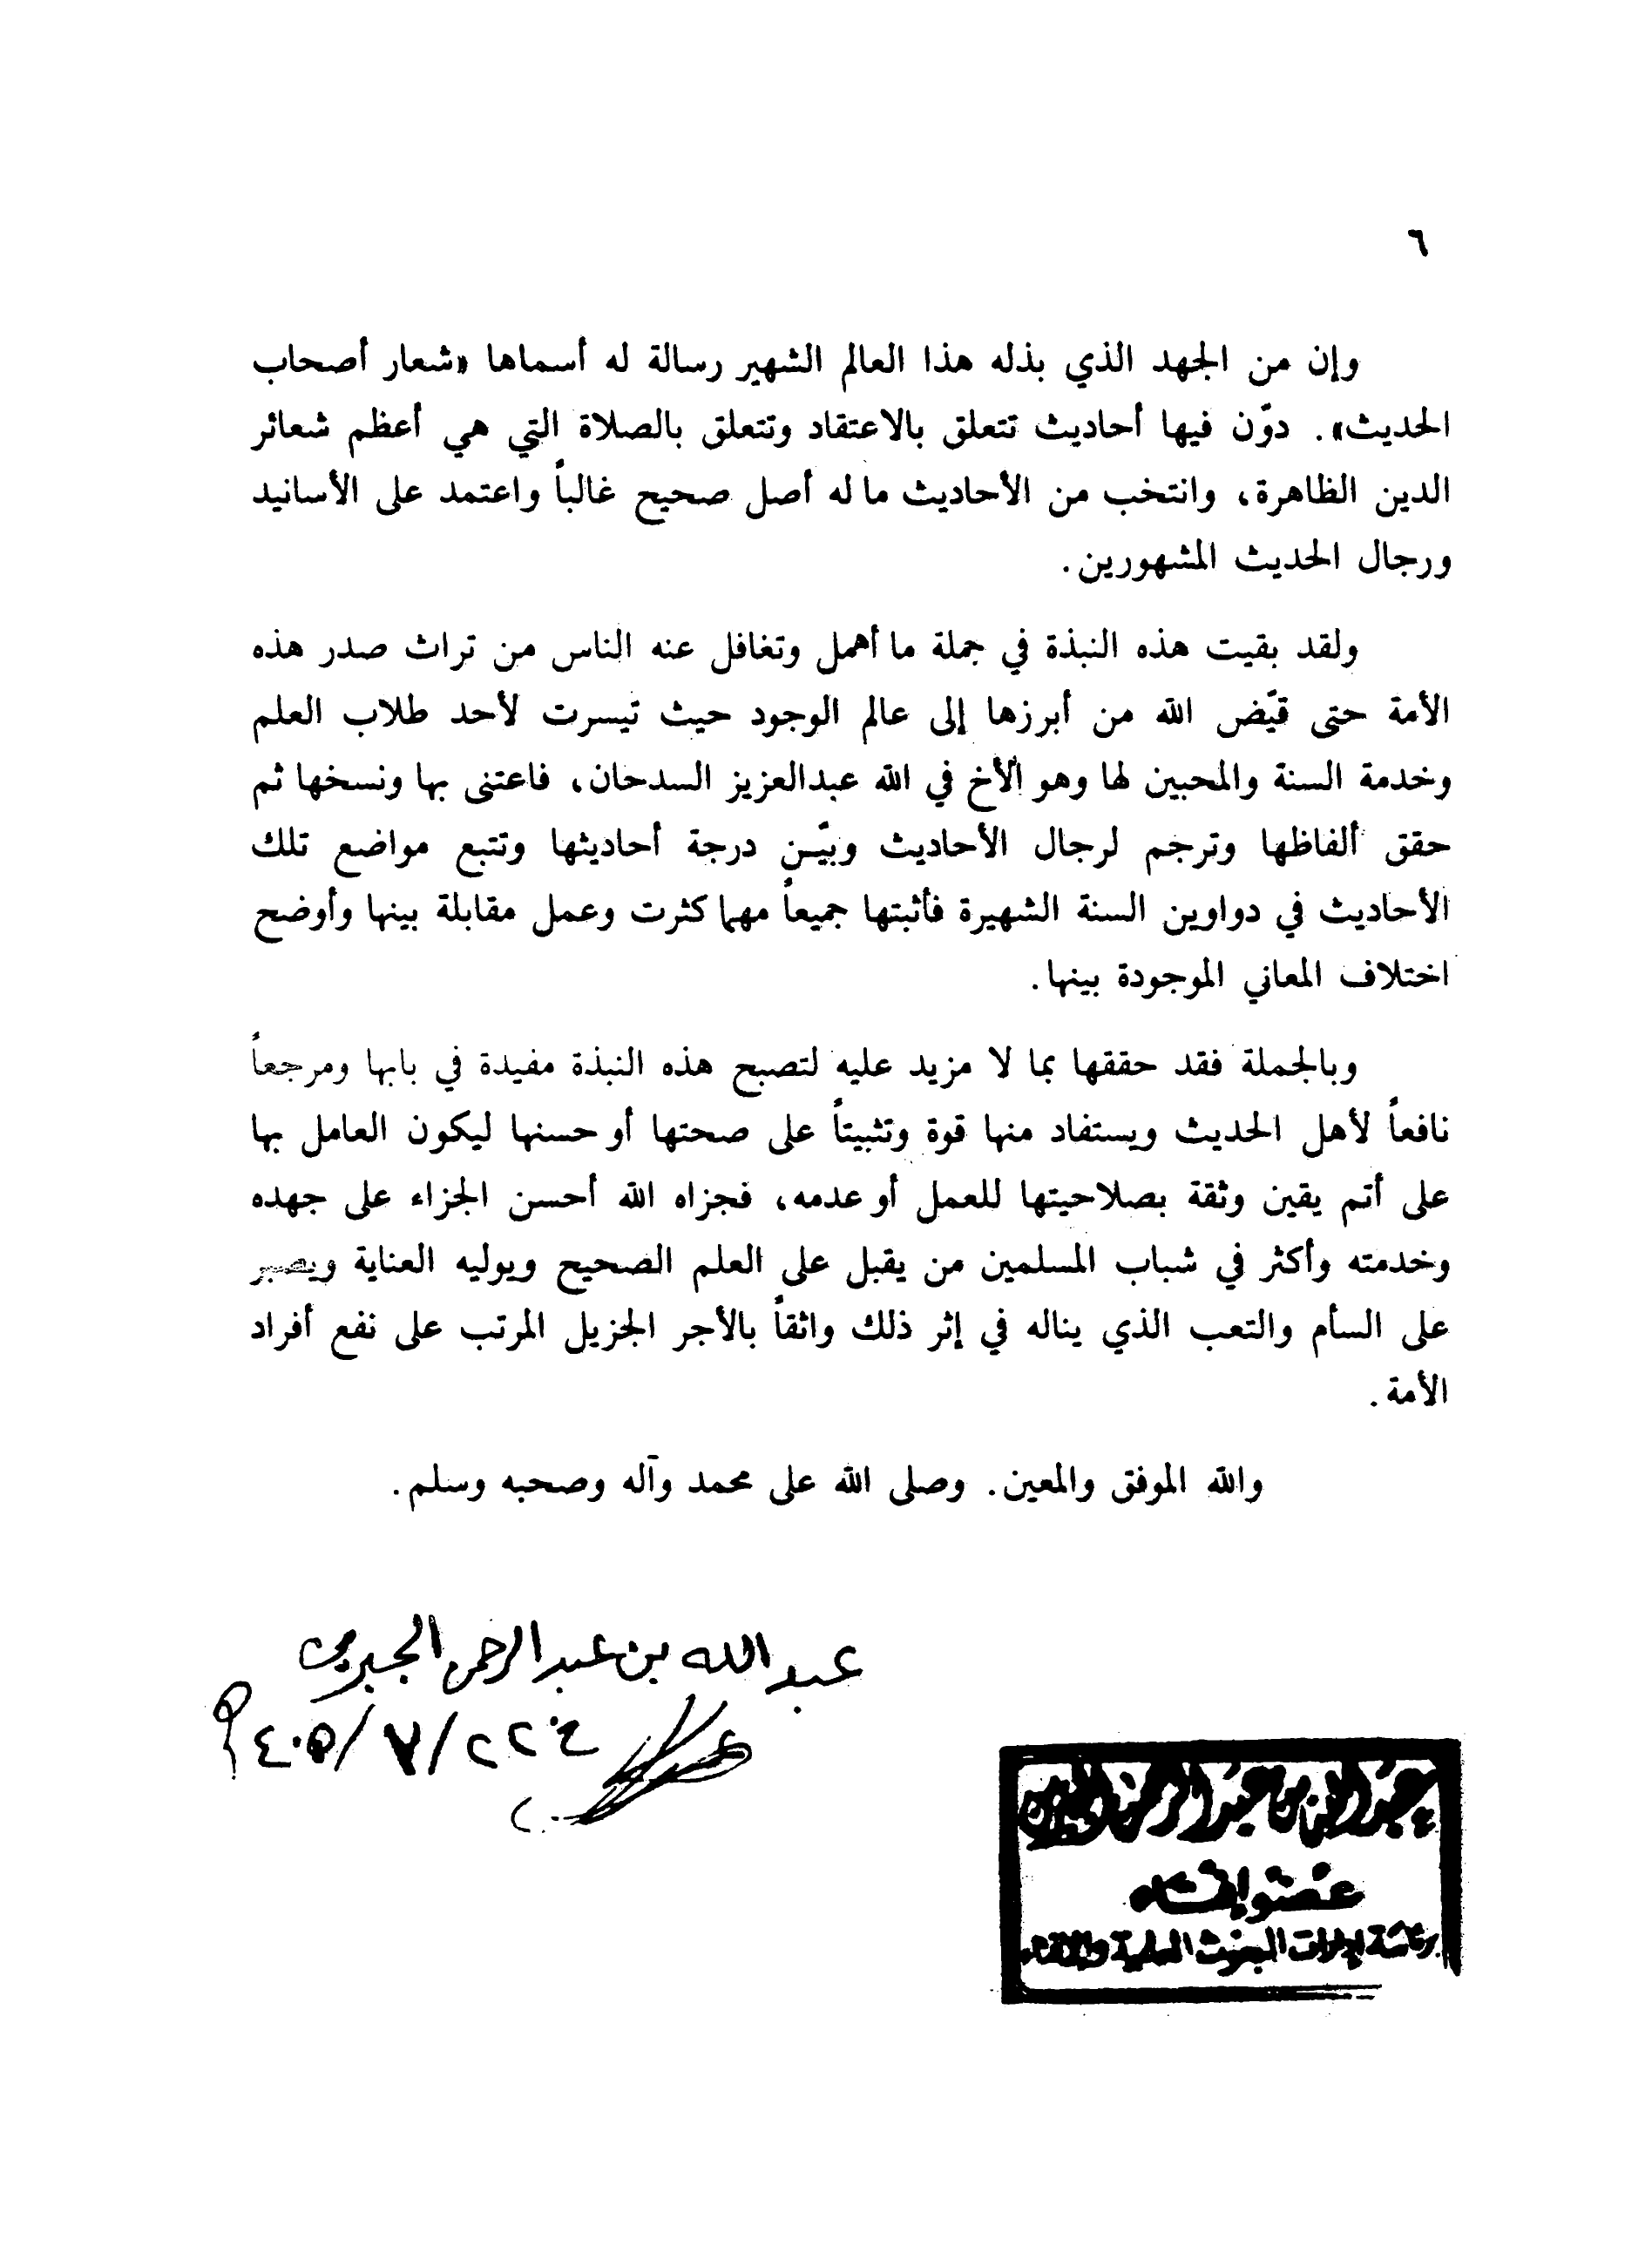 ٦
وإن من الجهد الذي بذله هذا العالم الشهير رسالة له أسماها «شعار أصحاب
الحديث». دوّن فيها أحاديث تتعلق بالاعتقاد وتتعلق بالصلاة التي هي أعظم شعائر
الدين الظاهرة، وانتخب من الأحاديث ما له أصل صحيح غالباً واعتمد على الأسانيد
ورجال الحديث المشهورين.
ولقد بقيت هذه النبذة في جملة ما أهمل وتغافل عنه الناس من تراث صدر هذه
الأمة حتى قيّض الله من أبرزها إلى عالم الوجود حيث تيسرت لأحد طلاب العلم
وخدمة السنة والمحبين لها وهو الأخ في الله عبدالعزيز السدحان، فاعتنى بها ونسخها ثم
حقق ألفاظها وترجم لرجال الأحاديث وبيّن درجة أحاديثها وتتبع مواضع تلك
الأحاديث في دواوين السنة الشهيرة فأثبتها جميعاً مهما كثرت وعمل مقابلة بينها وأوضح
اختلاف المعاني الموجودة بينها.
وبالجملة فقد حققها بما لا مزيد عليه لتصبح هذه النبذة مفيدة في بابها ومرجعاً
نافعاً لأهل الحديث ويستفاد منها قوة وتثبيتاً على صحتها أو حسنها ليكون العامل بها
على أتم يقين وثقة بصلاحيتها للعمل أو عدمه، فجزاه الله أحسن الجزاء على جهده
وخدمته وأكثر في شباب المسلمين من يقبل على العلم الصحيح ويوليه العناية ويصبر
على السأم والتعب الذي يناله في إثر ذلك واثقاً بالأجر الجزيل المرتب على نفع أفراد
الأمة.
والله الموفق والمعين. وصلى الله على محمد وآله وصحبه وسلم.
عبد الله بن عبد الرحمن الجبرين
عبد الله بن عبد الرحمن الجبرين
عضو إفتاء
برئاسة إدارات البحوث العلمية والإفتاء